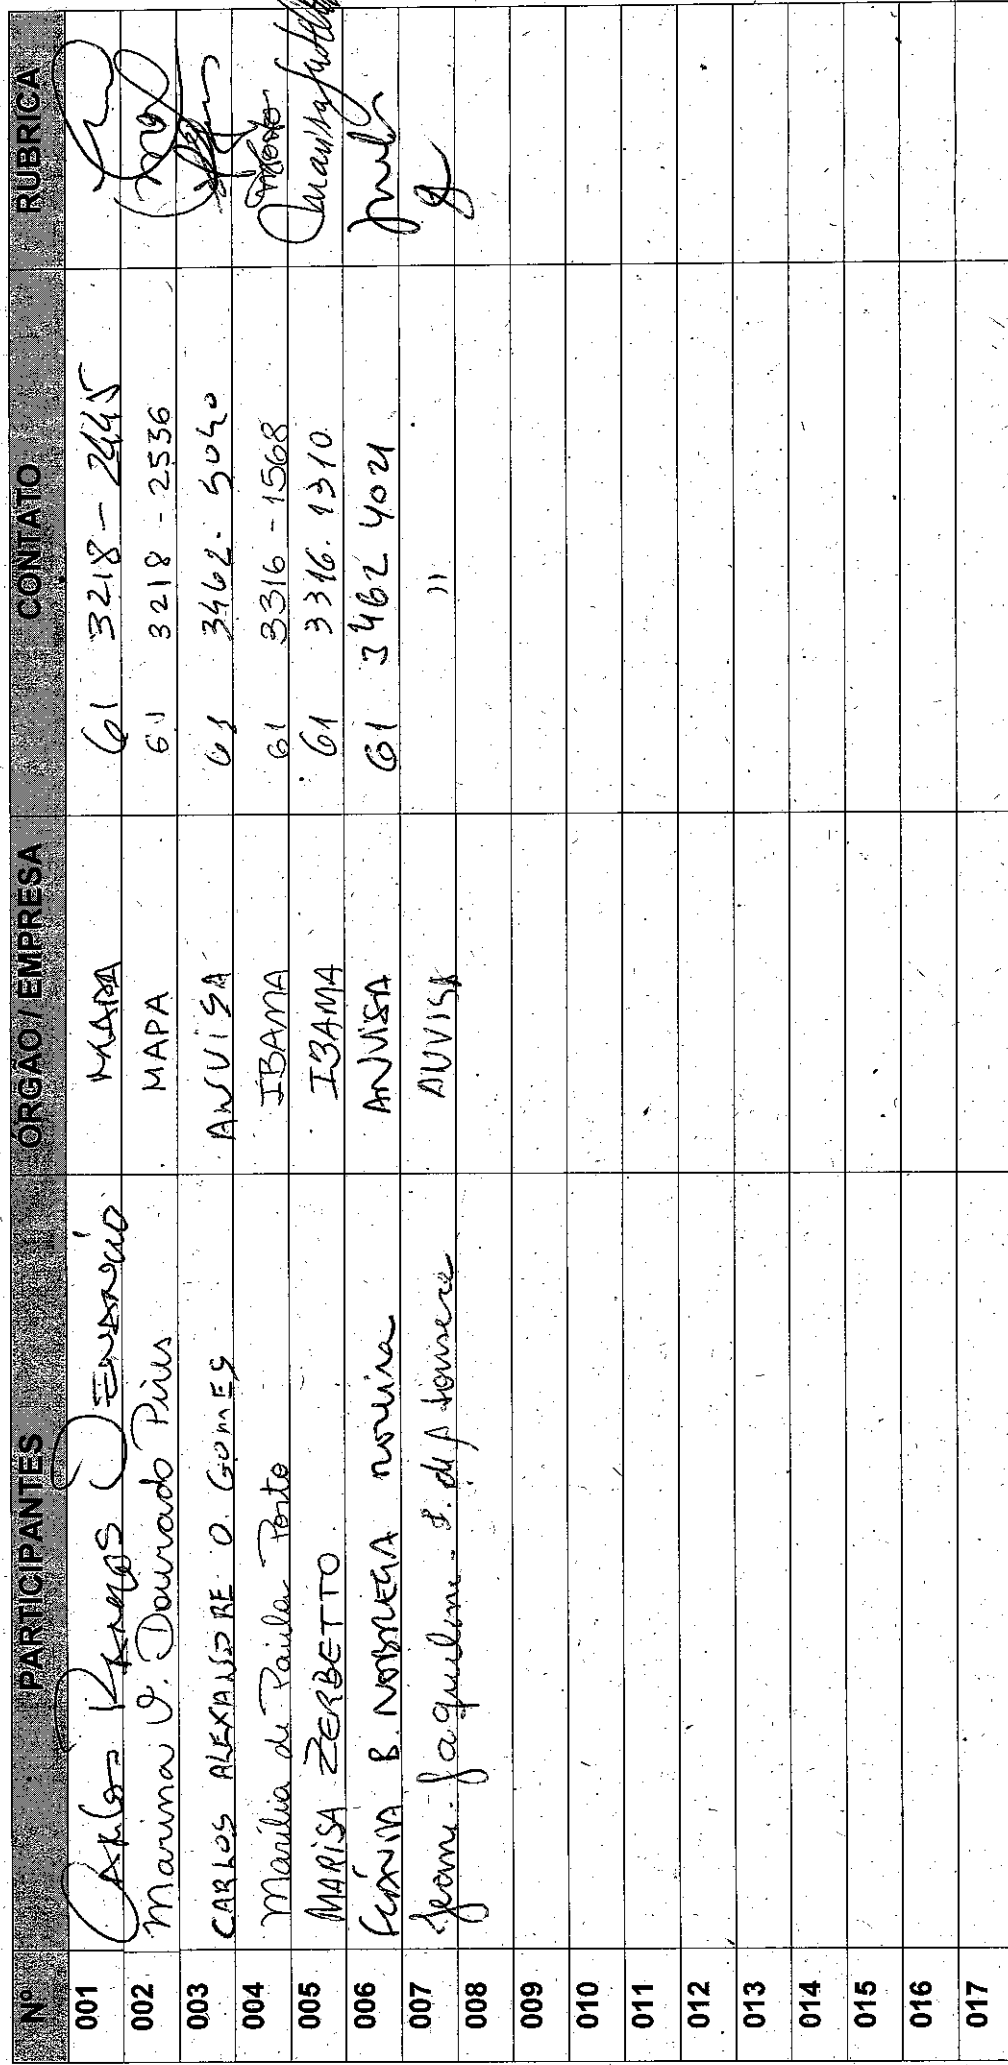 Nº PARTICIPANTES ÓRGÃO / EMPRESA CONTATO RUBRICA
001 Carlos Venancio MAPA 61 3218-2445
002 Marina V. Dourado Pires MAPA 61 3218-2536
003 CARLOS ALEXANDRE O. GOMES ANVISA 61 3462-5040
004 Marília de Paula Porto IBAMA 61 3316-1568
005 MARISA ZERBETTO IBAMA 61 3316.1310
006 B. NOBREGA ANVISA 61 3462 4021
007 Jeane Jaqueline F. de ANVISA "
008
009
010
011
012
013
014
015
016
017